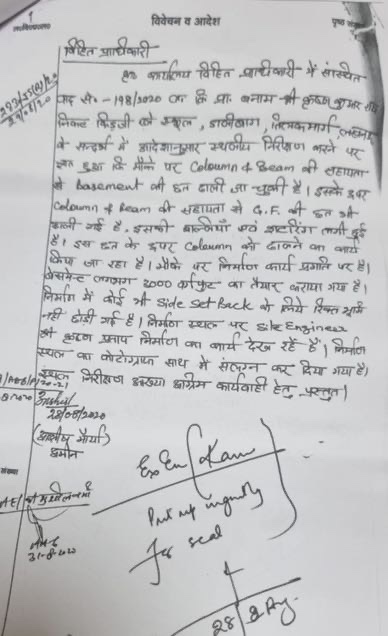 1
विवेचन व आदेश
पृष्ठ
विहित प्राधिकारी
इस कार्यालय विहित प्राधिकारी में संस्थित
वाद सं०-198/2020 ल० वि० प्रा० बनाम श्री कृष्ण कुमार
निकट किड्जी स्कूल, डालीबाग, तिलकमार्ग, लखनऊ
के सन्दर्भ में आदेशानुसार स्थलीय निरीक्षण करने पर
ज्ञात हुआ कि मौके पर Coloumn & Beam की सहायता
से Basement की छत ढाली जा चुकी है। इसके ऊपर
Coloumn & Beam की सहायता से G.F. की छत भी
ढाली गई है, इसकी बल्लियाँ एवं शटरिंग लगी हुई
है। इस छत के ऊपर Coloumn को ढालने का कार्य
किया जा रहा है। मौके पर निर्माण कार्य प्रगति पर है।
बेसमेन्ट लगभग 3000 वर्गफुट का तैयार कराया गया है।
निर्माण में कोई भी Side Set Back के लिये रिक्त भूमि
नहीं छोडी गई है। निर्माण स्थल पर Site Engineer
श्री कृष्ण प्रताप निर्माण का कार्य देख रहें हैं। निर्माण
स्थल का फोटोग्राफ साथ में संलग्न कर दिया गया है।
स्थल निरीक्षण आख्या अग्रिम कार्यवाही हेतु प्रस्तुत।
28/08/2020
(आशीष मौर्या)
अमीन
Ex En
Put up urgently
for seal
31-8-2020
28 Aug.